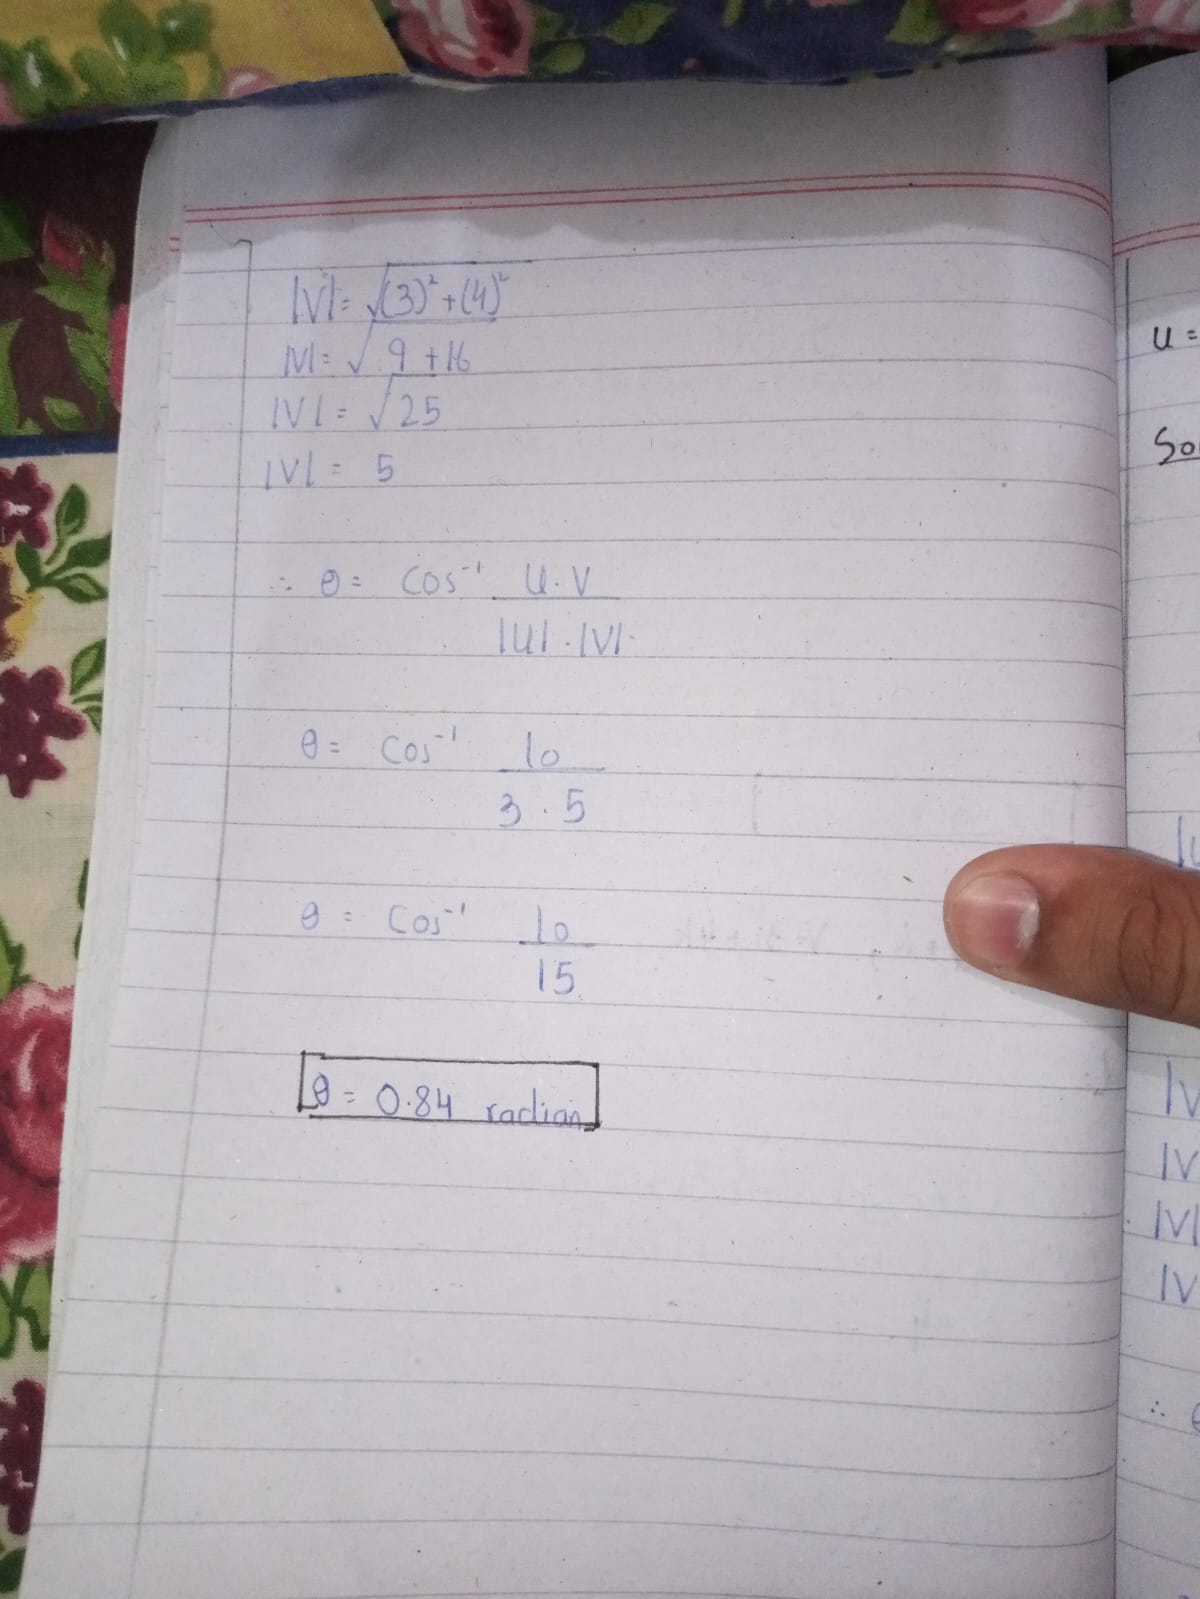 |V| = √(3)² + (4)²
|V| = √9 + 16
|V| = √25
|V| = 5
∴ θ = Cos⁻¹ U · V
|U| · |V|
θ = Cos⁻¹ 10
3 · 5
θ = Cos⁻¹ 10
15
θ = 0.84 radian
u =
|V
|V
|V|
|V
∴